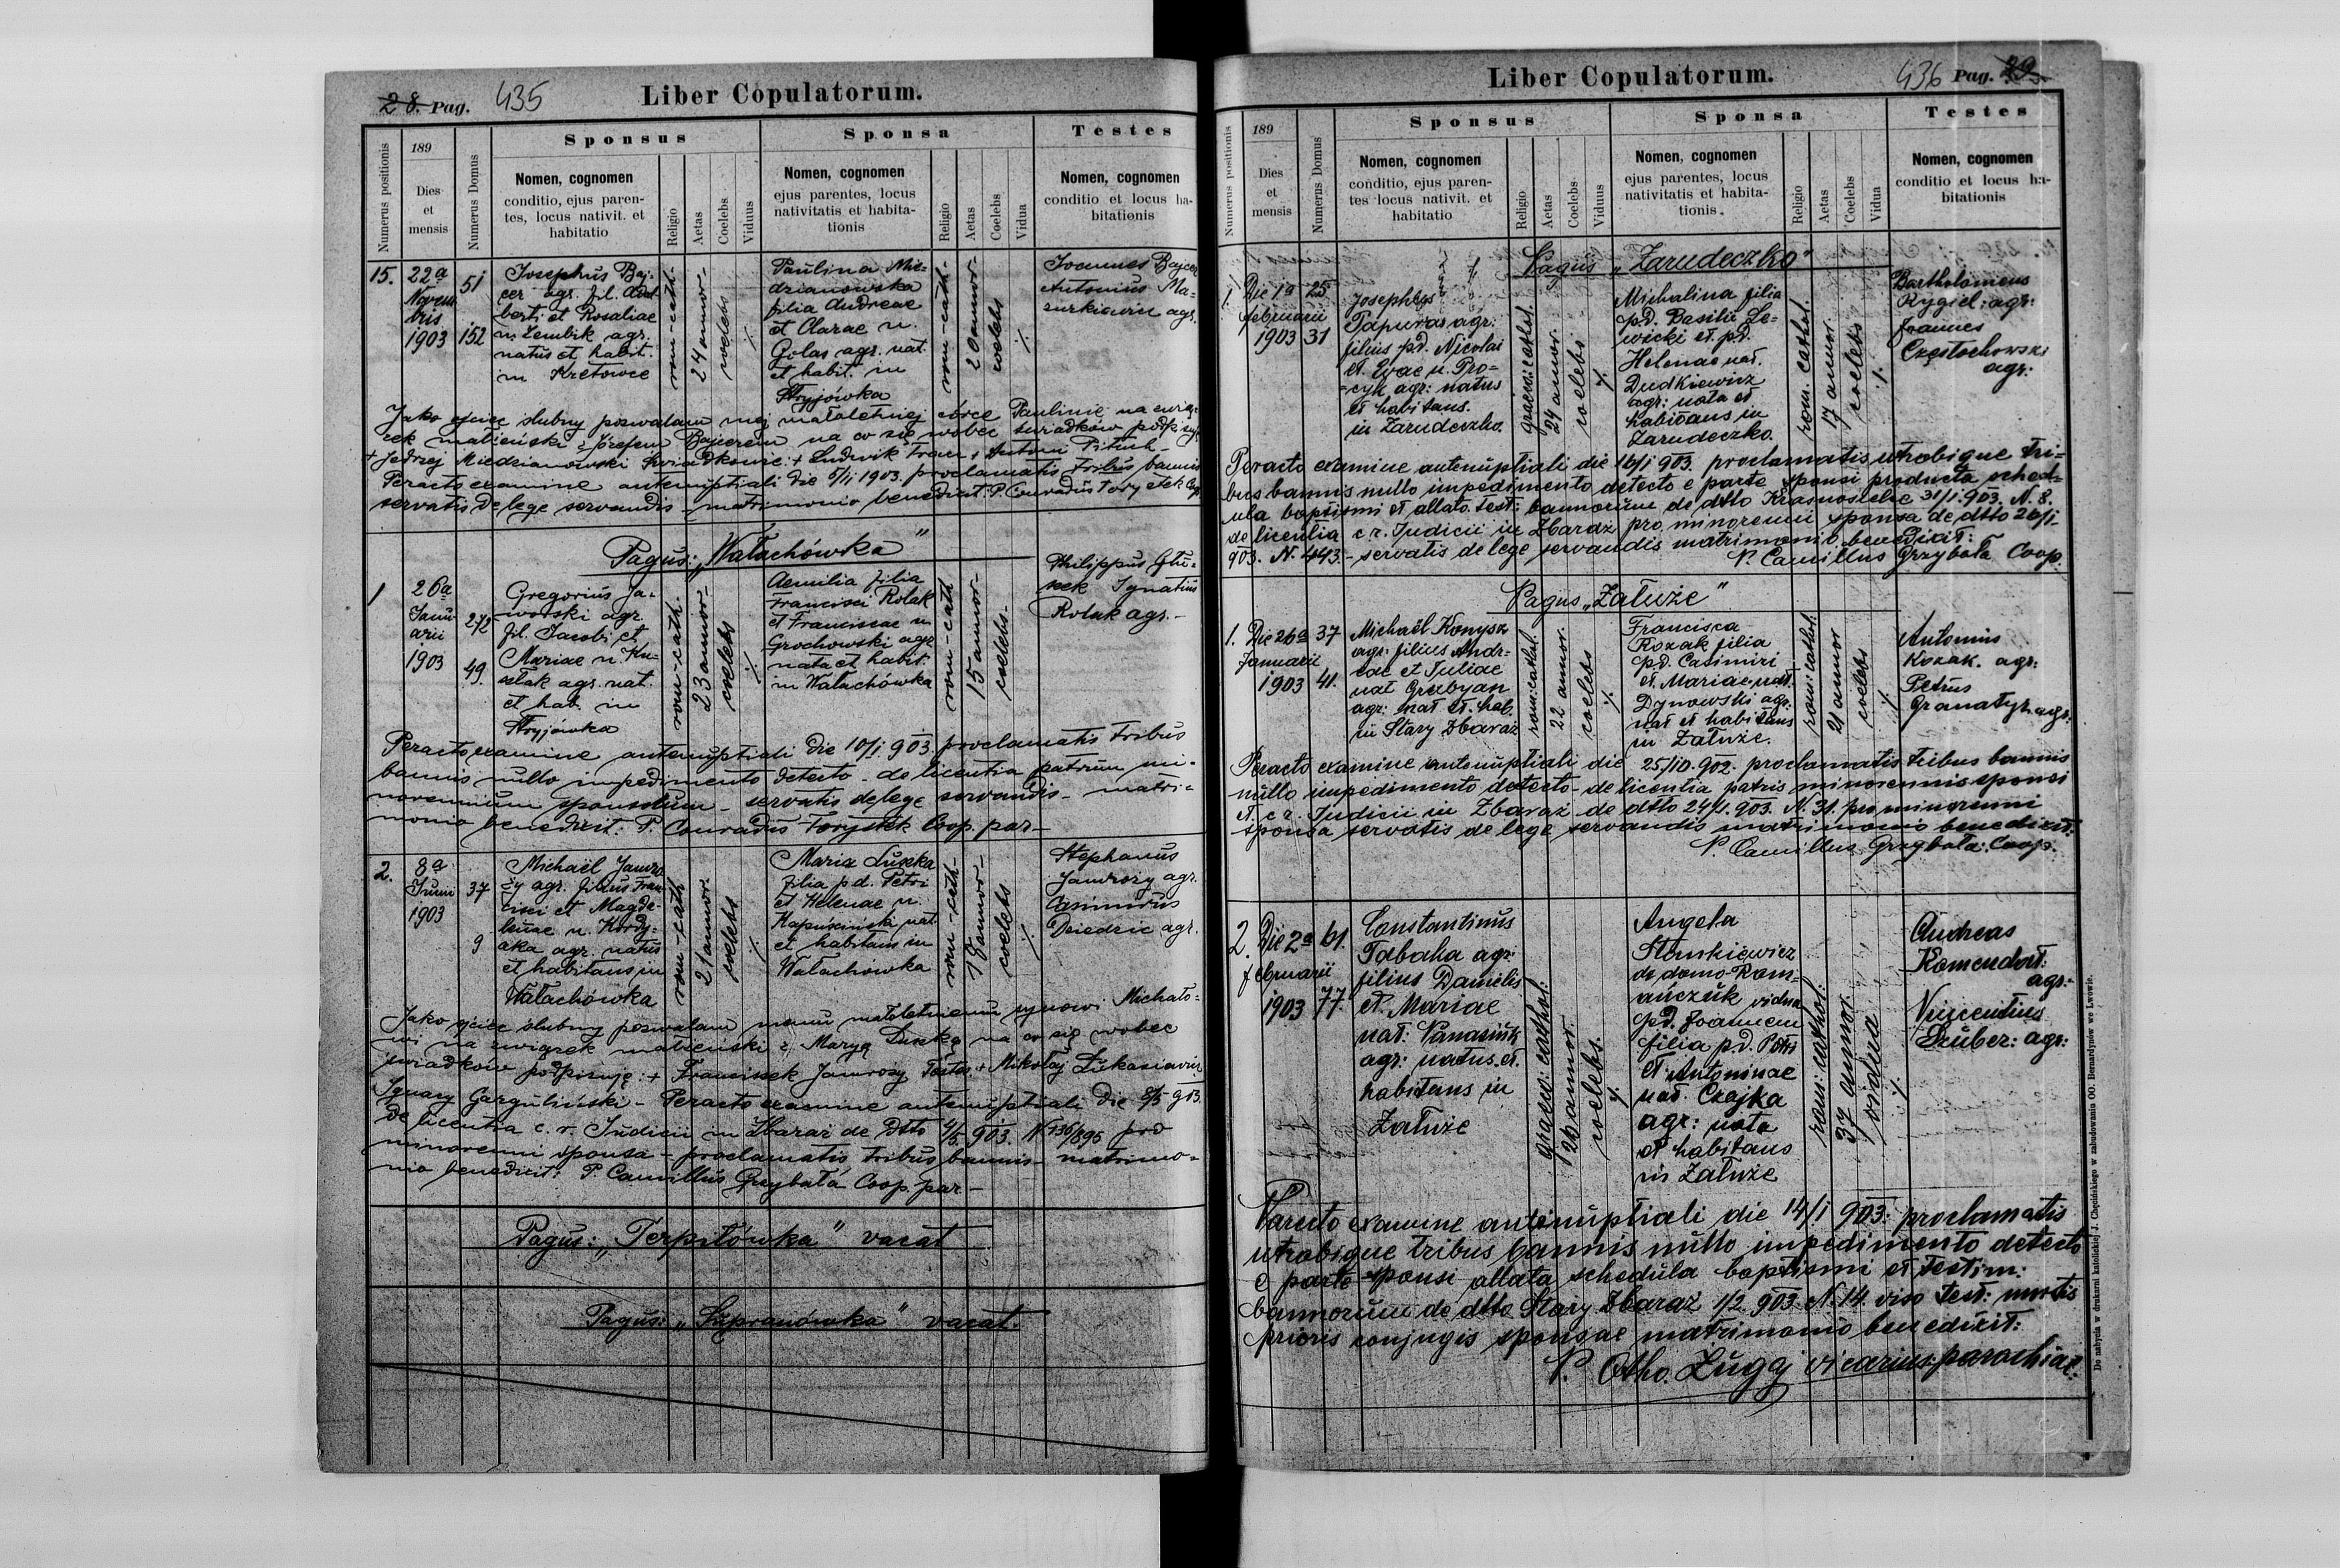 28. Pag. 435
Liber Copulatorum.
Numerus positionis
189
Dies
et
mensis
Numerus Domus
Sponsus
Nomen, cognomen
conditio, ejus paren-
tes, locus nativit. et
habitatio
Religio
Aetas
Coelebs
Viduus
Sponsa
Nomen, cognomen
ejus parentes, locus
nativitatis et habita-
tionis
Religio
Aetas
Coelebs
Vidua
Testes
Nomen, cognomen
conditio et locus ha-
bitationis
15.
22a
Novem
bris
1903
51
152
Josephus Baj-
cer agr. fil. Adal
berti et Rosaliae
n. Zembik agr.
natus et habit.
in Kretowce
rom-cath-
24 annor-
coelebs
Paulina Mie-
dzianowska
filia Andreae
et Clarae n.
Golas agr. nat.
et habit. in
Stryjówka
rom-cath-
20 annor-
coelebs
Joannes Bajcer
Antonius Ma-
zurkiewicz agr.
Jako ojciec ślubny pozwalam mej małoletniej córce Paulinie na związ-
ek małżeński z Józefem Bajcerem na co się wobec świadków podpisuję
+ Jędrzej Miedzianowski Świadkowie: + Ludwik + Antoni
Peracto examine antenuptiali die 5/11 1903. proclamatis tribus bannis
servatis de lege servandis - matrimonio benedixit: P. Conradus Forystek Coop.
Pagus: „Wałachówka”
1
26a
Janu
arii
1903
272
49.
Gregorius Ja-
worski agr.
fil. Jacobi et
Mariae n. Ku-
agr. nat.
et hab. in
Stryjówka
rom-cath.
23 annor-
coelebs
Aemilia filia
Francisci Rolak
et Franciscae n.
Grochowski agr.
nata et habit.
in Wałachówka
rom-cath
15 annor-
coelebs.
Philippus Głu-
szek Ignatius
Rolak agr. -
Peracto examine antenuptiali die 10/1 903. proclamatis tribus
bannis nullo impedimento detecto - de licentia patrum mi-
norennium sponsorum - servatis de lege servandis - matri-
monio benedixit: P. Conradus Forystek Coop. par -
2.
8a
Juni
1903
37
9
Michaël Jamro
zy agr. filius Fran
cisci et Magda-
lenae n. Kordy-
aka agr. natus
et habitans in
Wałachówka
rom-cath
21 annor.
coelebs
Maria Luszka
filia p d. Petri
et Helenae n.
Kapuścińska nat
et habitans in
Wałachówka
rom-cath-
18 annor-
coelebs
Stephanus
Jamrozy agr.
Casimirus
Dziedzic agr.
Jako ojciec ślubny pozwalam memu małoletniemu synowi Michało-
wi na związek małżeński z Maryą Luszką na co się wobec
świadków podpisuję: + Franciszek Jamrozy Testes + Mikołaj Łukasiewicz
Ignacy Garguliński - Peracto examine antenuptiali die 8/5 903.
de licentia c. r. Judicii in Zbaraż de dtto 4/6 903. N 136/896 pro
minorenni sponsa - proclamatis tribus bannis - matrimo-
nio benedixit: P. Camillus Grzybała Coop. par -
Pagus: „Terpiłówka” vacat
Pagus: „Supranówka” vacat.
Liber Copulatorum.
436 Pag. 29.
Numerus positionis
189
Dies
et
mensis
Numerus Domus
Sponsus
Nomen, cognomen
conditio, ejus paren-
tes locus nativit. et
habitatio
Religio
Aetas
Coelebs
Viduus
Sponsa
Nomen, cognomen
ejus parentes, locus
nativitatis et habita-
tionis.
Religio
Aetas
Coelebs
Vidua
Testes
Nomen, cognomen
conditio et locus ha-
bitationis
Pagus „Zarudeczko”
1.
Die 1a
februarii
1903
25
31
Josephus
Papuras agr:
filius pd. Nicolai
et Evae n. Pro-
cyk agr: natus
et habitans.
in Zarudeczko.
graeco: cathol.
24 annor.
coelebs
Michalina filia
p.d. Basilii Le-
wicki et p.d.
Helenae nat.
Dudkiewicz
agr: nata et
habitans in
Zarudeczko.
rom. cathol.
17 annor.
coelebs
Bartholomeus
Rygiel: agr:
Joannes
Częstochowski
agr:
Peracto examine antenuptiali die 16/1 903. proclamatis utrobique tri-
bus bannis nullo impedimento detecto e parte sponsi producta sched-
ula baptismi et allato test: bannorum de dtto Krasnosielce 31/1 903. N. 8.
de licentia c r. Judicii in Zbaraż pro minorenni sponsa de dtto 26/1
903. N. 443. - servatis de lege servandis matrimonio benedixit:
P. Camillus Grzybała Coop.
Pagus „Załuże”
1.
Die 26a
Januarii
1903
37
41.
Michaël Konysz
agr: filius Andr-
eae et Juliae
nat Grabyan
agr: nat et. hab.
in Stary Zbaraż
rom: cathol.
22 annor.
coelebs
Francisca
Kozak filia
p.d. Casimiri
et Mariae nat.
Dynowski agr.
nat et habitans
in Załuże.
rom: cathol.
21 annor
coelebs
Antonius
Kozak. agr:
Petrus
Granatyr agr:
Peracto examine antenuptiali die 25/10. 902. proclamatis tribus bannis
nullo impedimento detecto - de licentia patris minorennis sponsi
et c r. Judicii in Zbaraż de dtto 24/1. 903. N. 31. pro minorenni
sponsa servatis de lege servandis matrimonio benedixit.
P. Camillus Grzybała: Coop:
2.
Die 2a
februarii
1903
61.
77.
Constantinus
Tabaka agr:
filius Danielis
et Mariae
nat. Panasiuk
agr: natus et.
habitans in
Załuże
graeco: cathol:
26 annor.
coelebs.
Angela
Stankiewicz
de domo Rom-
ańczuk vidua
pd. Joannem
filia p.d. Petri
et Antoninae
nat. Czajka
agr: nata
et habitans
in Załuże
rom: cathol:
37 annor.
vidua
Andreas
Komendat:
agr:
Vincentius
Gruber: agr:
Peracto examine antenuptiali die 14/1 903: proclamatis
utrobique tribus bannis nullo impedimento detecto
e parte sponsi allata schedula baptismi et testim:
bannorum de dtto Stary Zbaraż 1/2 903. N. 14. viso test: mortis
prioris conjugis sponsae matrimonio benedixit:
P. Otho. Żugaj vicarius parochiae.
Do nabycia w drukarni katolickiej J. Chęcińskiego w zabudowaniu OO. Bernardynów we Lwowie.